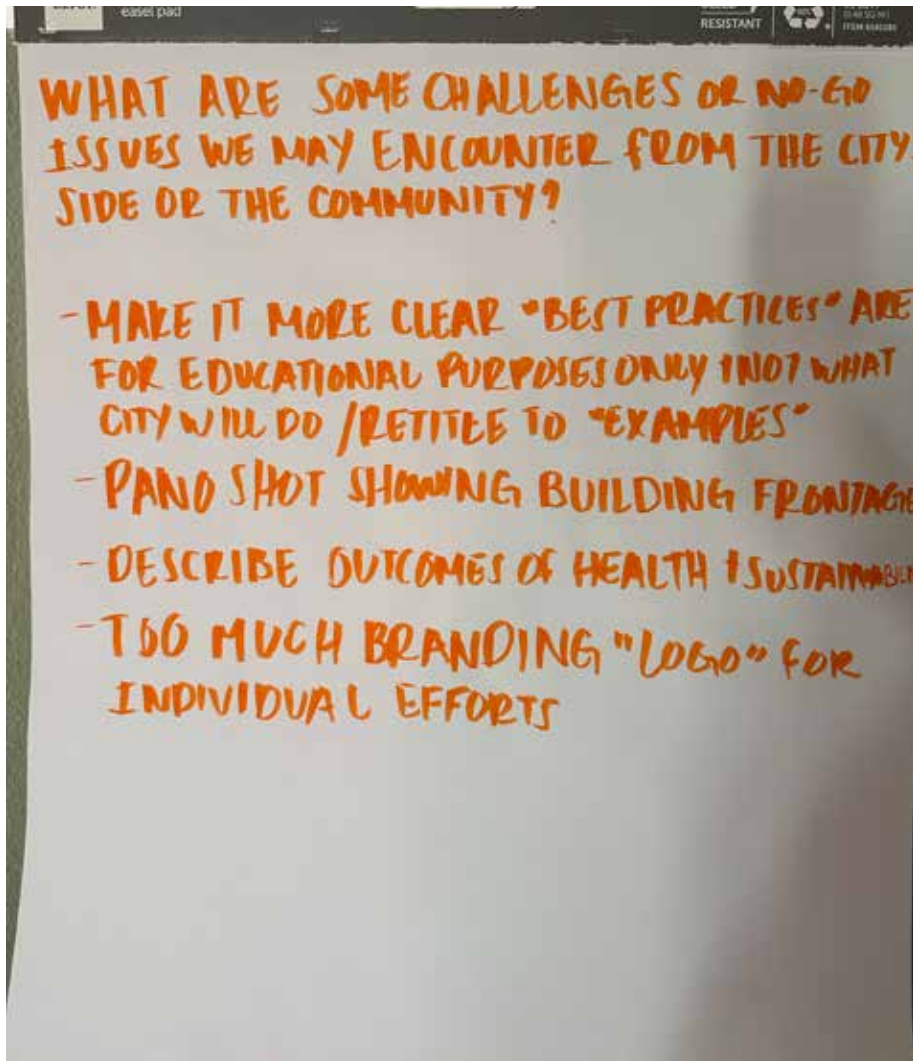 easel pad
RESISTANT
WHAT ARE SOME CHALLENGES OR NO-GO
ISSUES WE MAY ENCOUNTER FROM THE CITY
SIDE OR THE COMMUNITY?
- MAKE IT MORE CLEAR "BEST PRACTICES" ARE
FOR EDUCATIONAL PURPOSES ONLY & NOT WHAT
CITY WILL DO / RETITLE TO "EXAMPLES"
- PANO SHOT SHOWING BUILDING FRONTAGE
- DESCRIBE OUTCOMES OF HEALTH &
- TOO MUCH BRANDING "LOGO" FOR
INDIVIDUAL EFFORTS